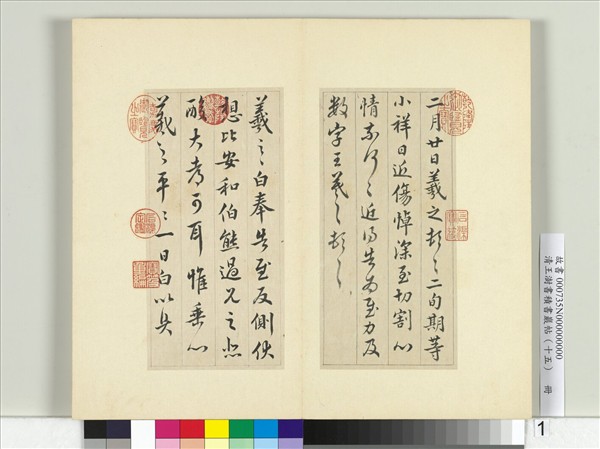 二月廿日羲之頓首二旬期等
小祥日近傷悼深至切割心
情奈何〻近得告為慰力及
数字王羲之頓首
羲之白奉告慰反側伏
想比安和伯熊過見之悲
酸大都可耳惟垂心
羲之平〻一日白以具
故書 000735N000000000
清王澍書積書巖帖（十五） 冊
1